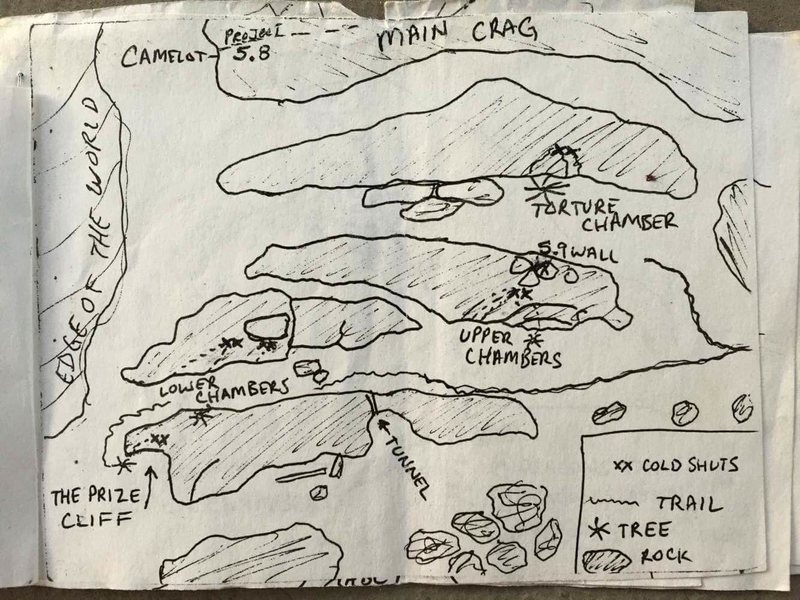 PROJECT
MAIN CRAG
CAMELOT
5.8
EDGE OF THE WORLD
TORTURE
CHAMBER
5.9 WALL
UPPER
CHAMBERS
LOWER
CHAMBERS
TUNNEL
THE PRIZE
CLIFF
XX COLD SHUTS
TRAIL
TREE
ROCK